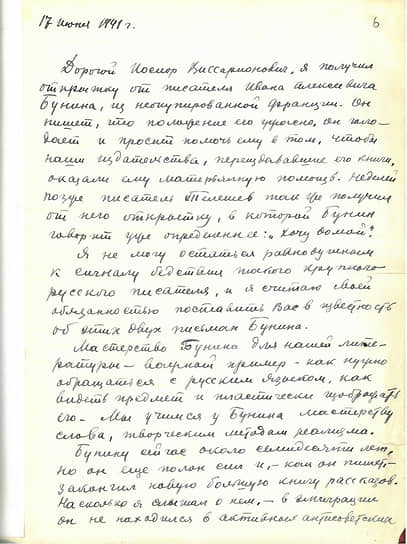 17 июня 1941 г.
6
Дорогой Иосиф Виссарионович, я получил
открытку от писателя Ивана Алексеевича
Бунина, из неокупированной Франции. Он
пишет, что положение его ужасно, он голо-
дает и просит помочь ему в том, чтобы
наши издательства, переиздававшие его книги,
оказали ему материальную помощь. Неделей
позже писатель Телешев так же получил
от него открытку, в которой Бунин
говорит уже определеннее: „хочу домой".
Я не могу остаться равнодушным
к сигналу бедствия такого крупного
русского писателя, и я считаю моей
обязанностью поставить Вас в известность
об этих двух письмах Бунина.
Мастерство Бунина для нашей лите-
ратуры – важный пример – как нужно
обращаться с русским языком, как
видеть предмет и пластически изображать
его. – Мы учимся у Бунина мастерству
слова, творческим методам реализма.
Бунину сейчас около семидесяти лет,
но он еще полон сил и, – как он пишет, –
закончил новую большую книгу рассказов.
Насколько я слышал о нем, – в эмиграции
он не находился в активных антисоветских